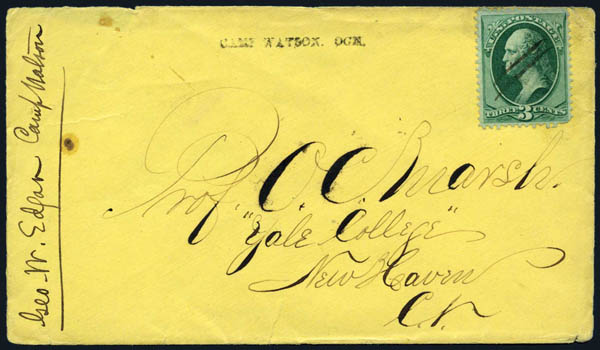 CAMP WATSON. OGN.
U.S. POSTAGE
THREE 3 CENTS
Prof. O. C. Marsh.
"Yale College"
New Haven
Geo. W. Edgar Camp Watson